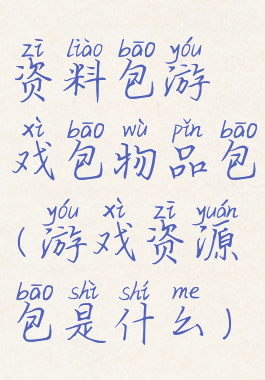 zī liào bāo yóu
资料包游
xì bāo wù pǐn bāo
戏包物品包
yóu xì zī yuán
(游戏资源
bāo shì shí me
包是什么)